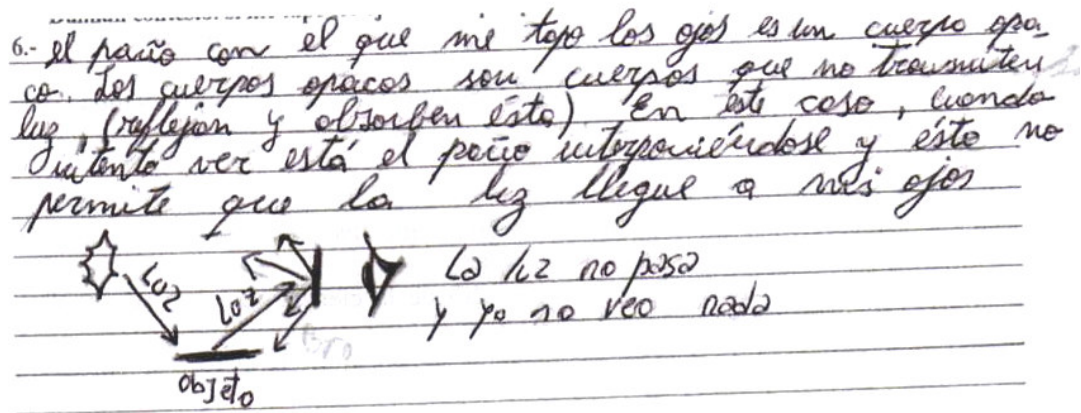 6.- El paño con el que me tapo los ojos es un cuerpo opa-
co. Los cuerpos opacos son cuerpos que no transmiten
luz, (reflejan y absorben ésta) En este caso, cuando
intento ver está el paño interponiéndose y éste no
permite que la luz llegue a mis ojos
Luz
Luz
La luz no pasa
y yo no veo nada
objeto